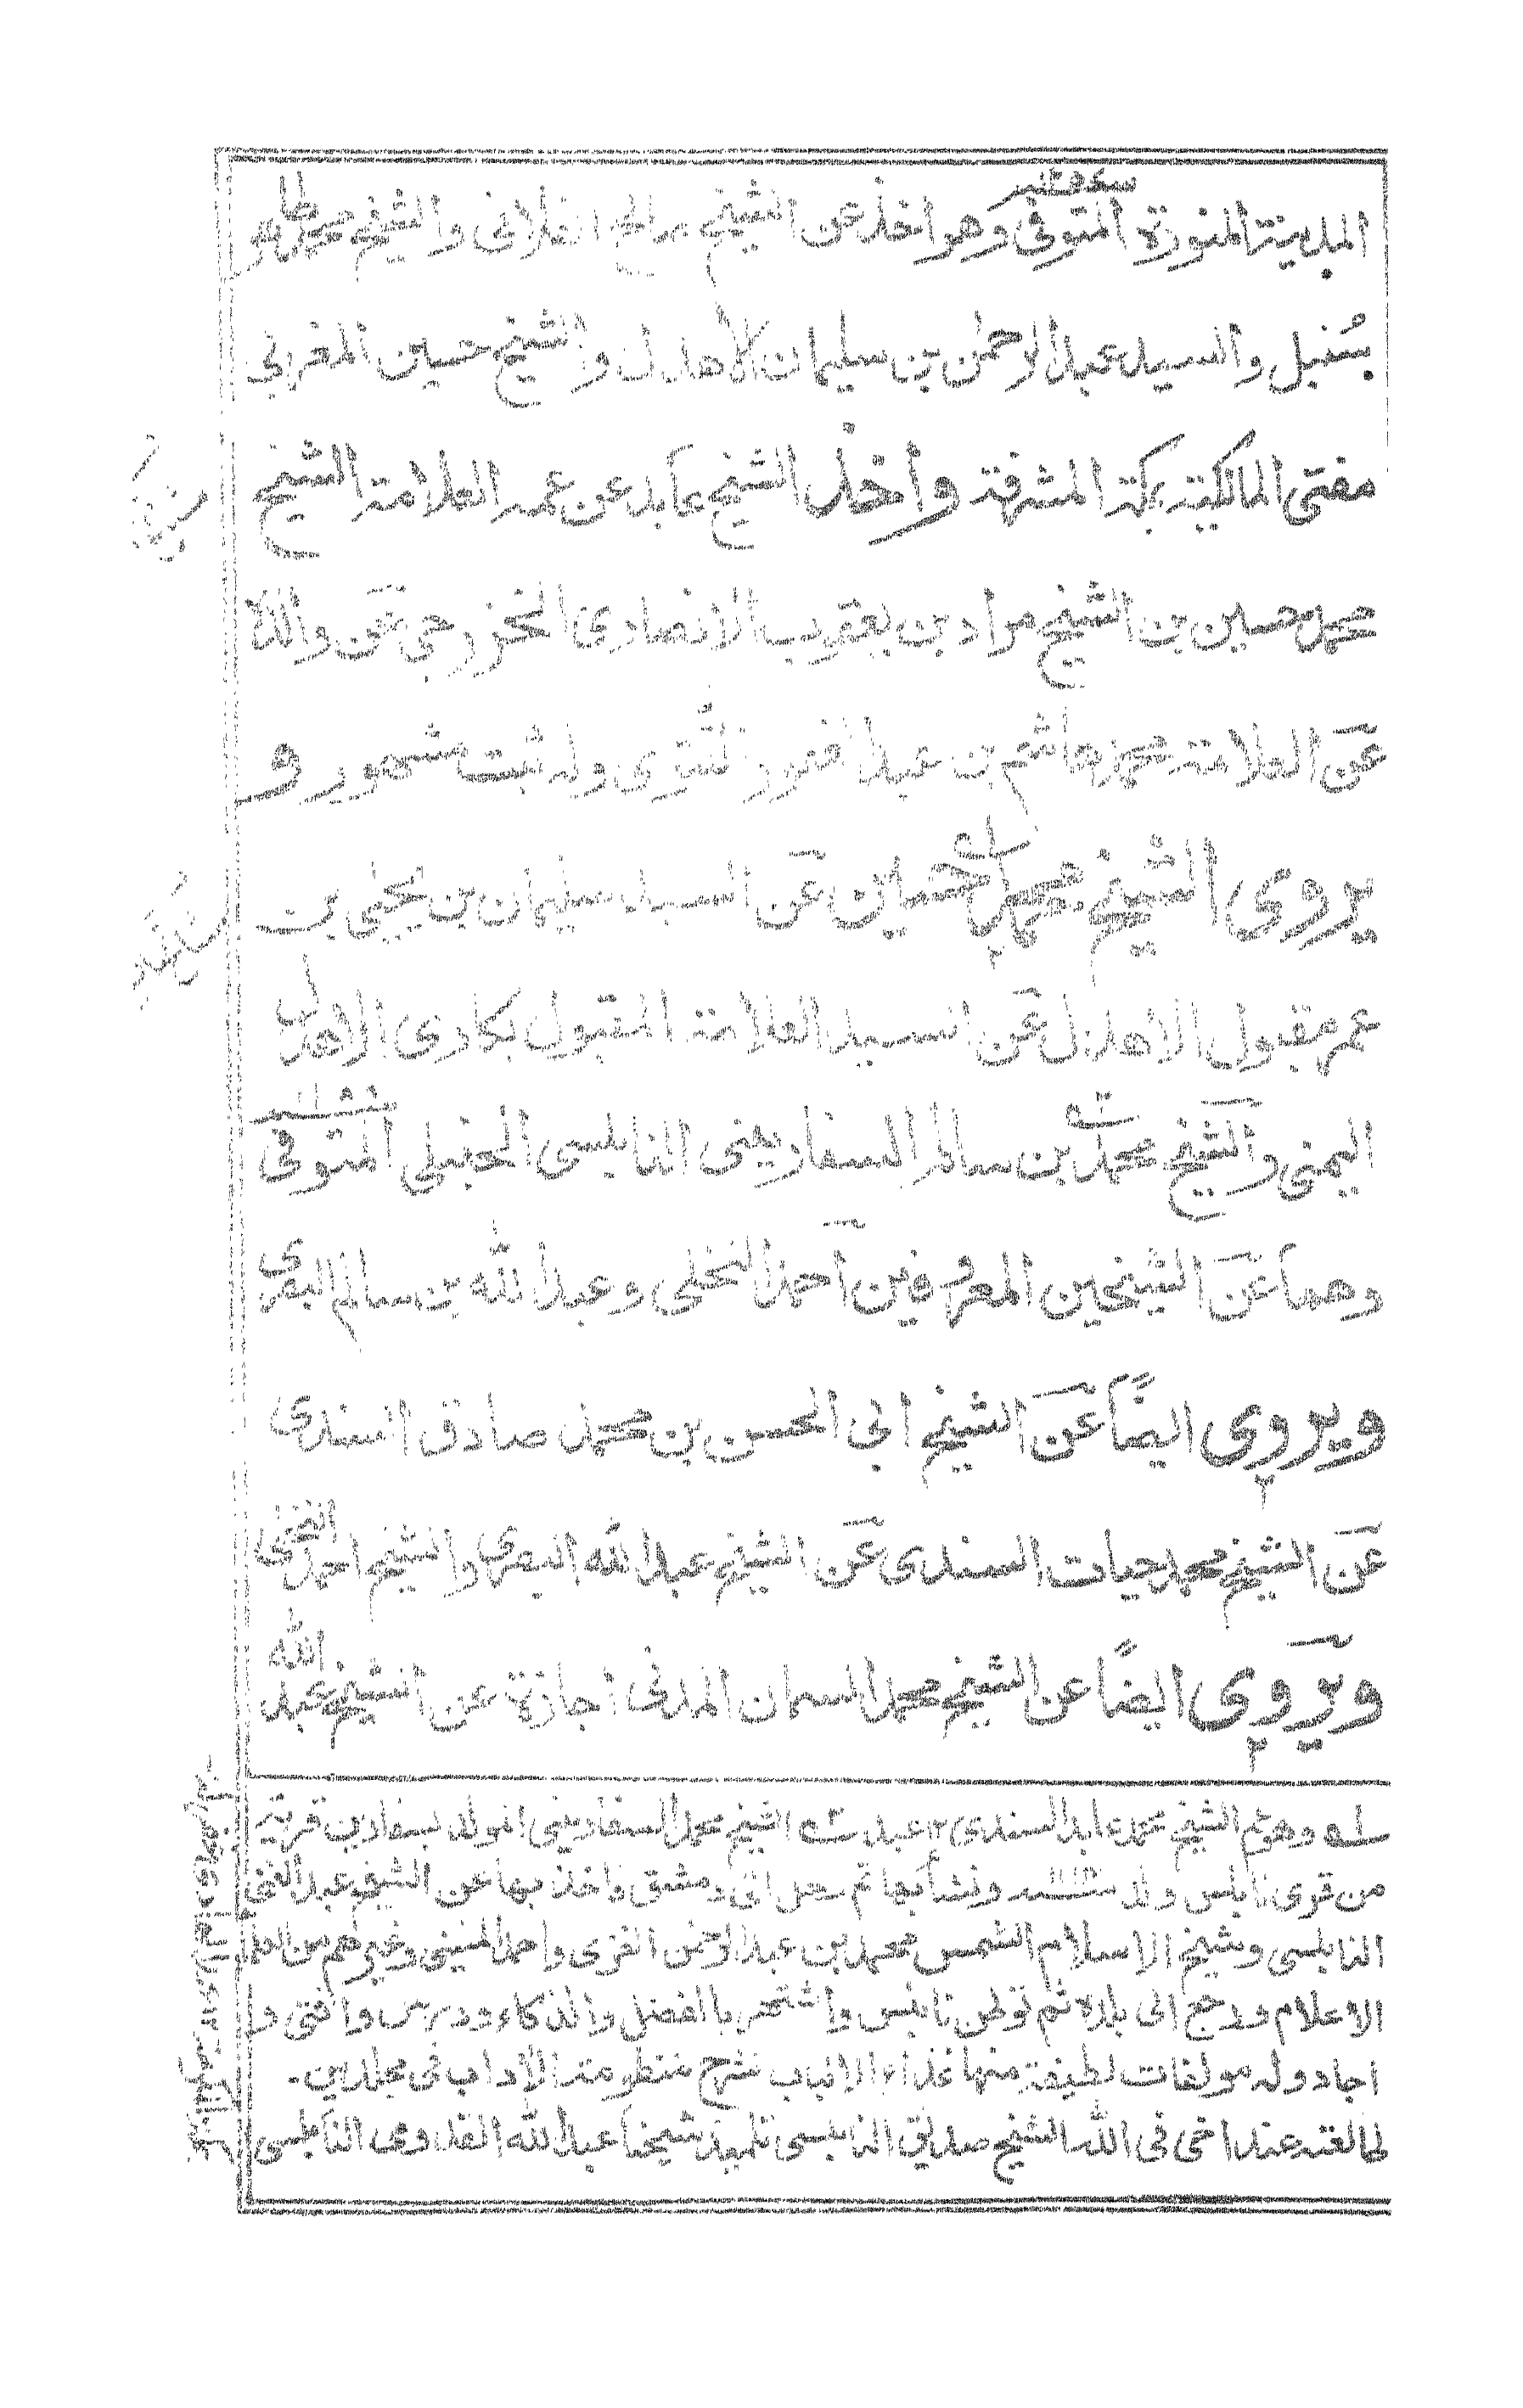 المدينة المنورة المتوفى وهو اخذ عن الشيخ صالح الفلانى والشيخ محمد طاهر
سنبل والسيد عبد الرحمٰن بن سليمان الأهدل والشيخ حسين المغربي
مفتى المالكية بمكة المشرفة واخذ الشيخ عابد عن عمه العلامة الشيخ
محمد حسين بن الشيخ مراد بن يعقوب الانصارى الخزرجى عن والده
عن العلامة محمد هاشم بن عبد الغفور التتوى وله ثبت مشهور و
يروى الشيخ محمد حسين عن السيد سليمان بن يحيى بن
عمر مقبول الاهدل عن السيد العلامة المقبول بكارى الاهدلى
اليمنى والشيخ محمد بن سالم السفارينى النابلسى الحنبلى المتوفى
وهما عن الشيخين المعروفين احمد النخلى وعبد الله بن سالم البصرى
ويروى ايضًا عن الشيخ ابى الحسن بن محمد صادق السندى
عن الشيخ محمد حيات السندى عن الشيخ عبد الله البصرى والشيخ احمد النخلى
ويروى ايضًا عن الشيخ محمد السمان المدنى اجازة عن الشيخ عبد الله
له وهو عم الشيخ محمد عابد السندى ١٢ عبد الشيخ محمد السفارينى المولد بسفارين قرية
من قرى نابلس ولد ونشأ بها ثم رحل الى دمشق واخذ بها عن الشيخ عبد الغنى
النابلسى وشيخ الاسلام الشمس محمد بن عبد الرحمن الغزى واحمد المنينى وغيرهم من العلماء
الاعلام ورجع الى بلده ثم توطن نابلس واشتهر بالفضل والذكاء ودرس وافتى و
اجاد وله مولفات لطيفة منها غذاء الالباب شرح منظومة الأداب فى مجلدين۔
طالعته عند اخى فى الله الشيخ النابلسى تلميذ شيخنا عبد الله القدومى النابلسى